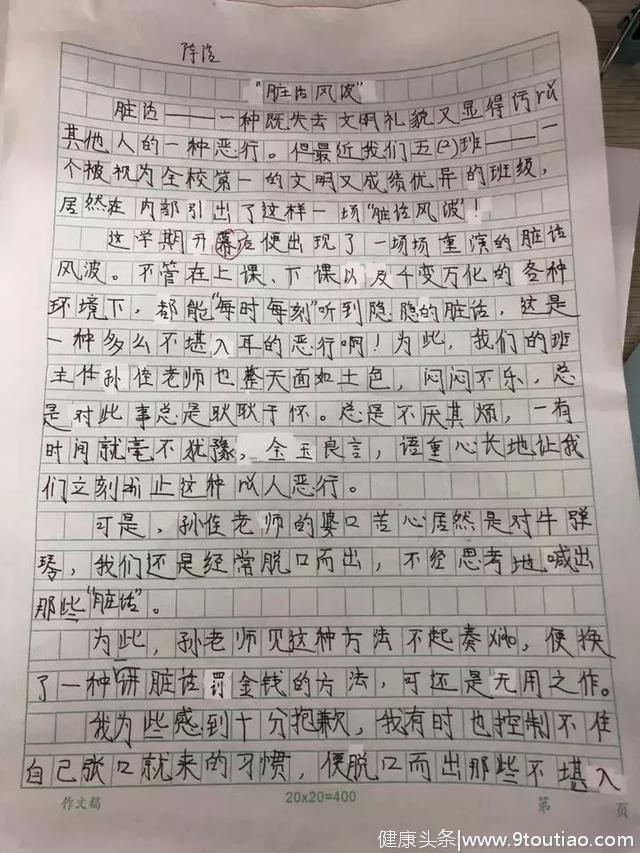 陈浩
“脏话风波”
脏话——一种既失去文明礼貌又显得污以
其他人的一种恶行。但最近我们五(2)班——一
个被视为全校第一的文明又成绩优异的班级，
居然在内部引出了这样一场“脏话风波”！
这学期开幕后便出现了一场场重演的脏话
风波。不管在上课、下课以及千变万化的各种
环境下，都能“每时每刻”听到隐隐的脏话，这是
一种多么不堪入耳的恶行啊！为此，我们的班
主任孙俊老师也整天面如土色，闷闷不乐，总
是对此事总是耿耿于怀。总是不厌其烦，一有
时间就毫不犹豫，金玉良言，语重心长地让我
们立刻停止这种以人恶行。
可是，孙俊老师的婆口苦心居然是对牛弹
琴，我们还是经常脱口而出，不经思考地喊出
那些“脏话”。
为此，孙老师见这种方法不起奏效，便换
了一种讲脏话罚金钱的方法，可还是无用之作。
我为些感到十分抱歉，我有时也控制不住
自己张口就来的习惯，便脱口而出那些不堪入
作文稿
20x20=400
第 页
健康头条/www.9toutiao.com